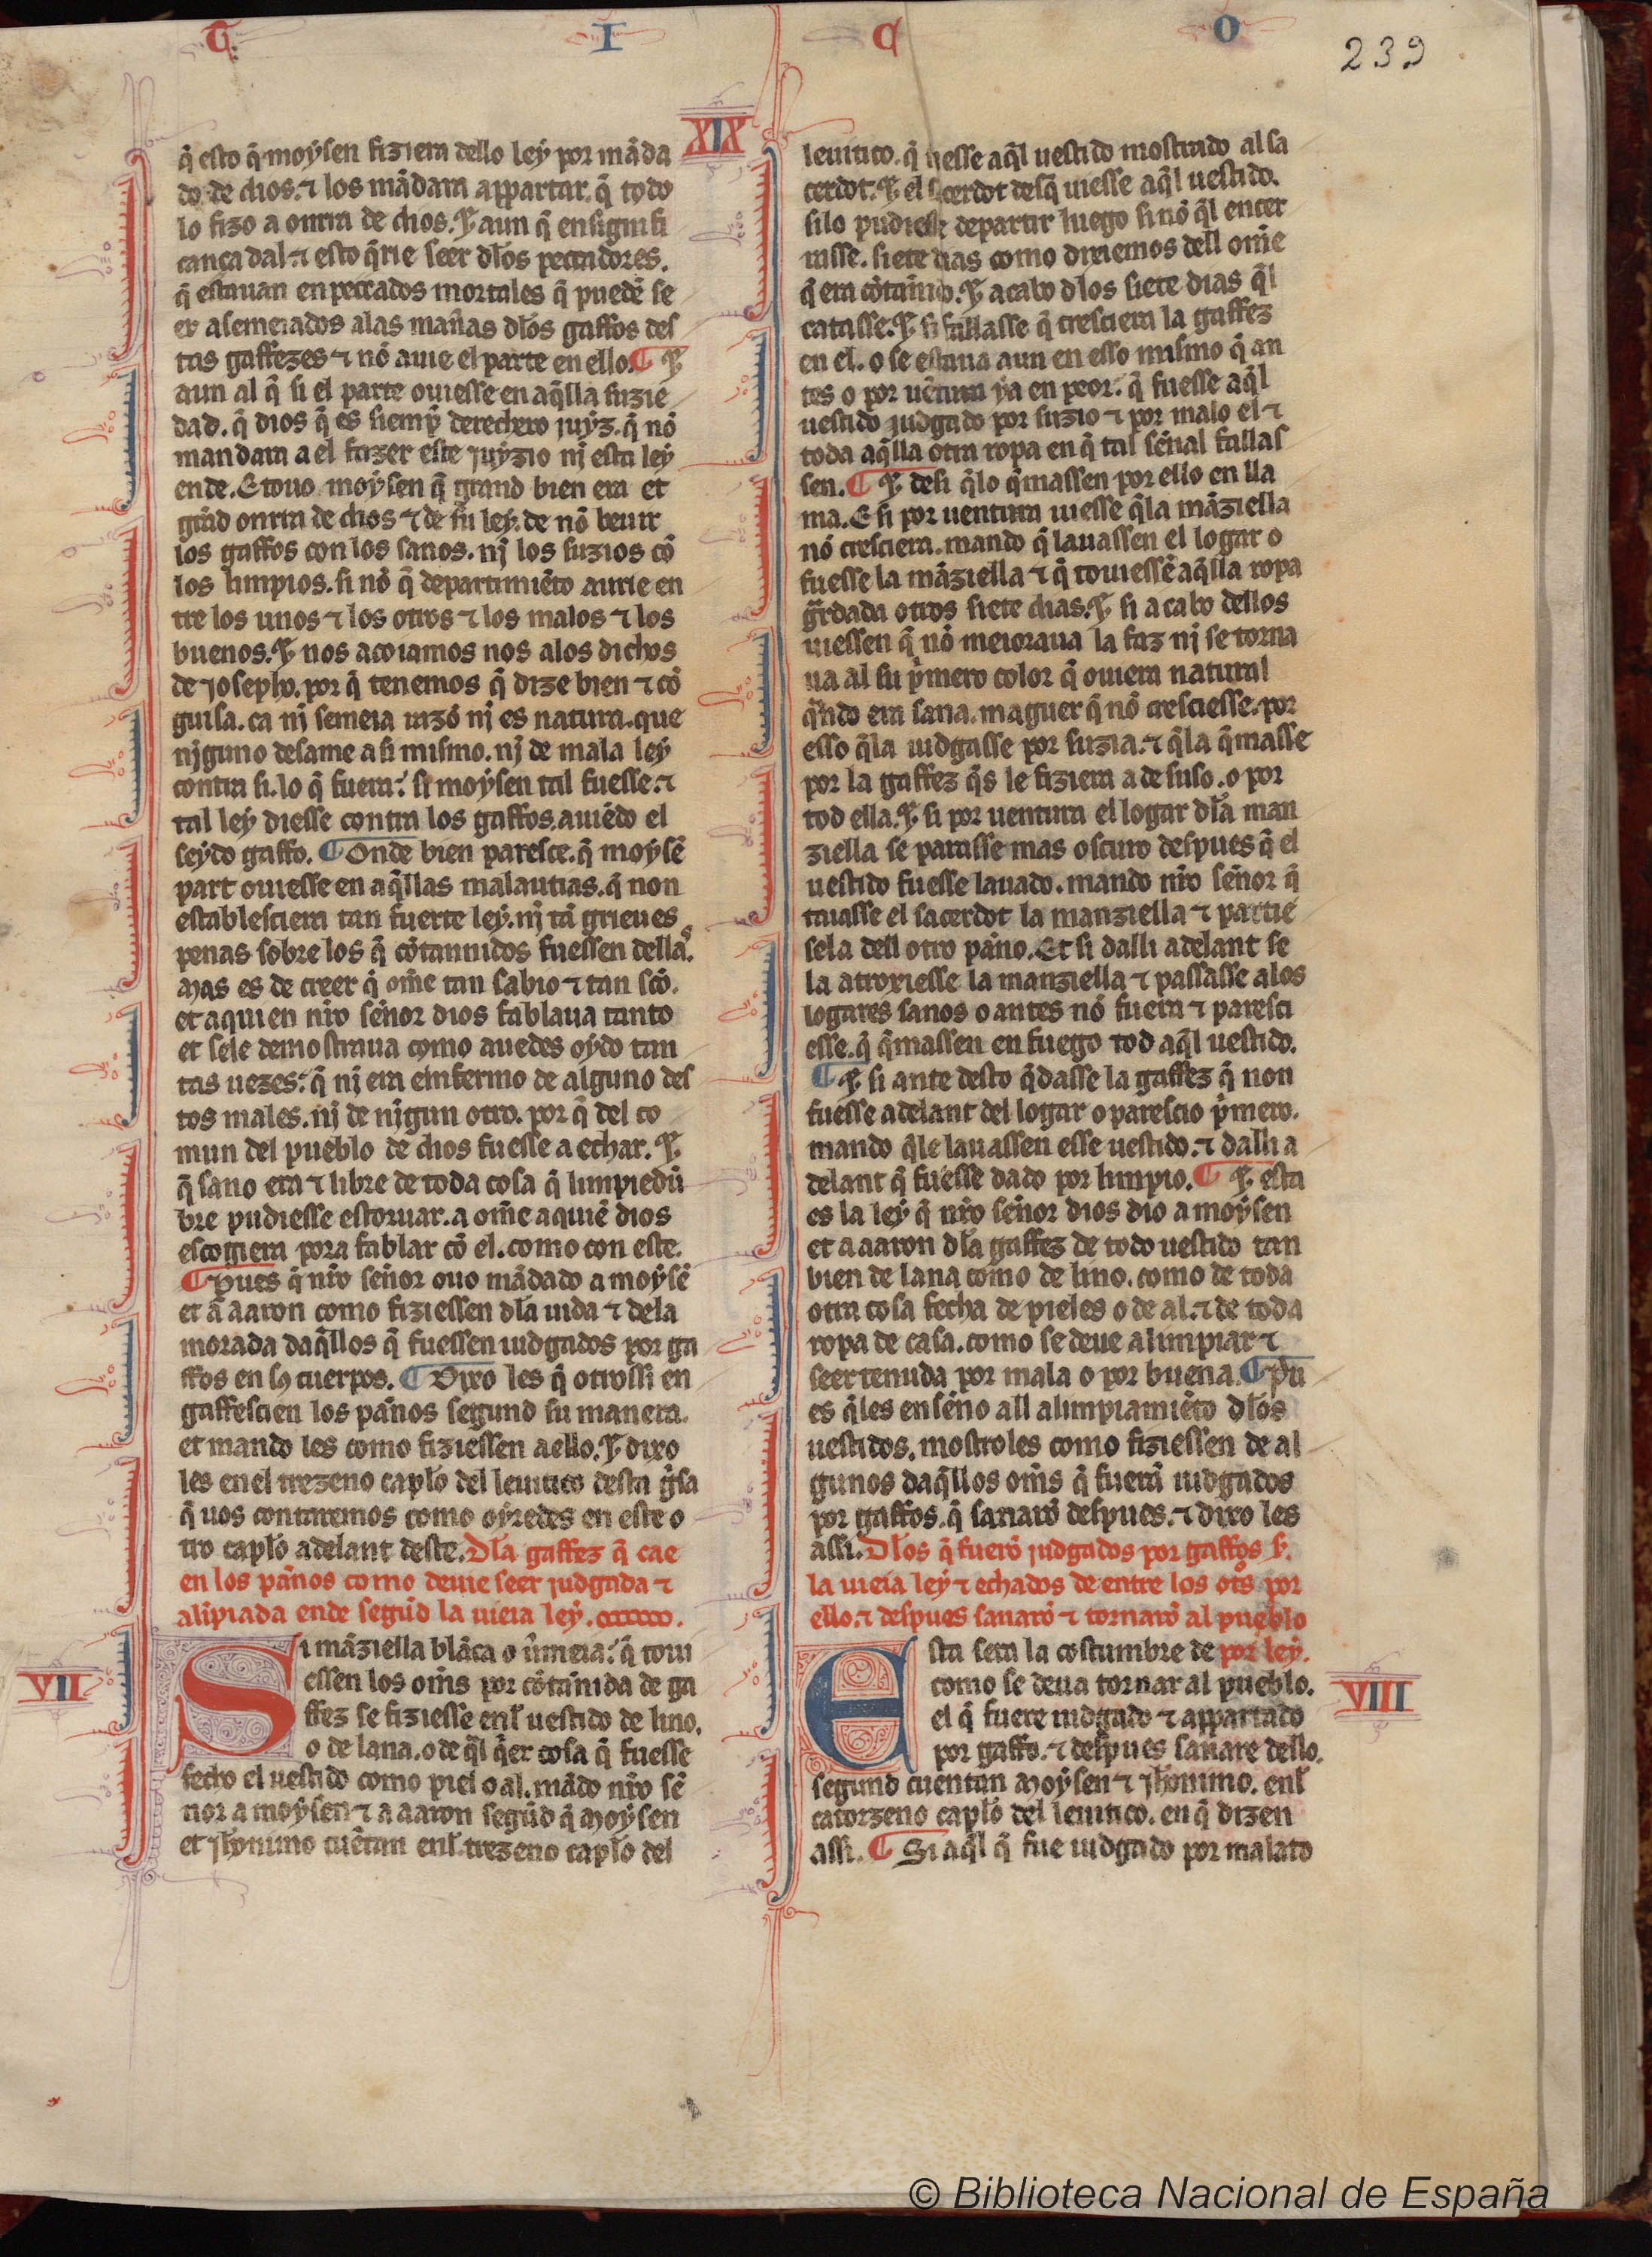 T I C O
239
XIX
q̃ esto q̃ moysen fiziera dello ley por mãda
do de dios. ⁊ los mãdara appartar. q̃ todo
lo fizo a onrra de dios. ⁊ aun q̃ ensignifi
cança dal. ⁊ esto q̃rie seer dl̃os peccadores.
q̃ estauan en peccados mortales q̃ puedẽ se
er asemeiados alas mañas dl̃os gaffos des
tas gaffezes ⁊ nõ auie el parte en ello. ¶ ⁊
aun al q̃ si el parte ouiesse en aq̃lla suzie
dad. q̃ dios q̃ es siemp̃ derechero juyz. q̃ nõ
mandara a el fazer este juyzio nj esta ley
ende. E touo moysen q̃ grand bien era et
grãd onrra de dios ⁊ de su ley. de nõ beuir
los gaffos con los sanos. nj los suzios cõ
los limpios. si nõ q̃ departimiẽto aurie en
tre los unos ⁊ los otros ⁊ los malos ⁊ los
buenos. ⁊ nos acoiamos nos alos dichos
de josepho. por q̃ tenemos q̃ dize bien ⁊ cõ
guisa. ca nj semeia razõ nj es natura. que
njguno desame a si mismo. nj de mala ley
contra si. lo q̃ fuera. si moysen tal fuesse. ⁊
tal ley diesse contra los gaffos. auiẽdo el
seydo gaffo. ¶ Onde bien paresce. q̃ moysẽ
part ouiesse en aq̃llas malautias. q̃ non
establesciera tan fuerte ley. nj tã grieues
penas sobre los q̃ cõtannidos fuessen dellas.
Mas es de creer q̃ om̃e tan sabio ⁊ tan scõ.
et aquien nr̃o sẽnor dios fablaua tanto
et sele demostraua como auedes oydo tan
tas uezes. q̃ nj era emfermo de alguno des
tos males. nj de njgun otro. por q̃ del co
mun del pueblo de dios fuesse a echar. ⁊
q̃ sano era ⁊ libre de toda cosa q̃ limpiedũ
bre pudiesse estoruar. a om̃e aquiẽ dios
escogiera pora fablar cõ el. como con este.
¶ Pues q̃ nr̃o sẽnor ouo mãdado a moysẽ
et a aaron como fiziessen dl̃a uida ⁊ dela
morada daq̃llos q̃ fuessen iudgados por ga
ffos en sỹ cuerpos. ¶ Dixo les q̃ otrossi en
gaffescien los pãnos segund su manera.
et mando les como fiziessen aello. ⁊ dixo
les en el trezeno caplõ del leuitico desta g̃sa
q̃ uos contaremos como oyredes en este o
tro caplõ adelant deste. Dl̃a gaffez q̃ cae
en los pãnos como deue seer judgada ⁊
alipiada ende segũd la uieia ley.
VII
Si mãziella blãca o ũmeia. q̃ toui
essen los om̃s por cõtãnida de ga
ffez se fiziesse enl̃ uestido de lino.
o de lana. o de q̃l q̃er cosa q̃ fuesse
fecho el uestido como piel o al. mãdo nr̃o sẽ
nor a moysen ⁊ a aaron segũd q̃ Moysen
et jħonimo cuẽtan enl̃ trezeno caplõ del
leuitico. q̃ uesse aq̃l uestido mostrado al sa
cerdot. ⁊ el sacerdot desq̃ uiesse aq̃l uestido.
silo pudiesse departir luego si nõ q̃l encer
rasse. siete dias como diremos dell om̃e
q̃ era cõtãnido. ⁊ acabo dlos siete dias q̃l
catasse. ⁊ si fallasse q̃ cresciera la gaffez
en el. o se estaua aun en esso mismo q̃ an
tes o por uẽtura ya en peor. q̃ fuesse aq̃l
uestido judgado por suzio ⁊ por malo el ⁊
toda aq̃lla otra ropa en q̃ tal sẽnal fallas
sen. ¶ ⁊ desi q̃lo q̃massen por ello en lla
ma. E si por uentura uiesse q̃la mãziella
nõ cresciera. mando q̃ lauassen el logar o
fuesse la mãziella ⁊ q̃ touiessẽ aq̃lla ropa
g̃rdada otros siete dias. ⁊ si a cabo dellos
uiessen q̃ nõ meioraua la faz nj se torna
ua al su p̃mero color q̃ ouiera natural
q̃ndo era sana. maguer q̃ nõ cresciesse. por
esso q̃la iudgasse por suzia. ⁊ q̃la q̃masse
por la gaffez q̃s le fiziera a de suso. o por
tod ella. ⁊ si por uentura el logar dl̃a man
ziella se parasse mas oscuro despues q̃ el
uestido fuesse lauado. mando nr̃o sẽnor q̃
taiasse el sacerdot la manziella ⁊ partie
sela dell otro pãno. Et si dalli adelant se
la atroxiesse la manziella ⁊ passasse alos
logares sanos o antes nõ fuera ⁊ paresci
esse. q̃ q̃massen en fuego tod aq̃l uestido.
¶ ⁊ si ante desto q̃dasse la gaffez q̃ non
fuesse adelant del logar o parescio p̃mero.
mando q̃le lauassen esse uestido. ⁊ dalli a
delant q̃ fuesse dado por limpio. ¶ ⁊ esta
es la ley q̃ nr̃o sẽnor dios dio a moysen
et a aaron dl̃a gaffez de todo uestido tan
bien de lana como de lino. como de toda
otra cosa fecha de pieles o de al. ⁊ de toda
ropa de casa. como se deue alimpiar ⁊
seer tenuda por mala o por buena. ¶ Pu
es q̃les ensẽno all alimpiamiẽto dl̃os
uestidos. mostroles como fiziessen de al
gunos daq̃llos om̃s q̃ fuerã iudgados
por gaffos. q̃ sanarõ despues. ⁊ dixo les
assi. Dl̃os q̃ fuerõ judgados por gaffos s̃.
la uieia ley ⁊ echados de entre los ot̃os por
ello. ⁊ despues sanarõ ⁊ tornarõ al pueblo
por ley.
VIII
Esta sera la costumbre de
como se deua tornar al pueblo.
el q̃ fuere iudgado ⁊ appartado
por gaffo. ⁊ despues sanare dello.
segund cuentan Moysen ⁊ jħonimo. enl̃
catorzeno caplõ del leuitico. en q̃ dizen
assi. ¶ Si aq̃l q̃ fue iudgado por malato
© Biblioteca Nacional de España